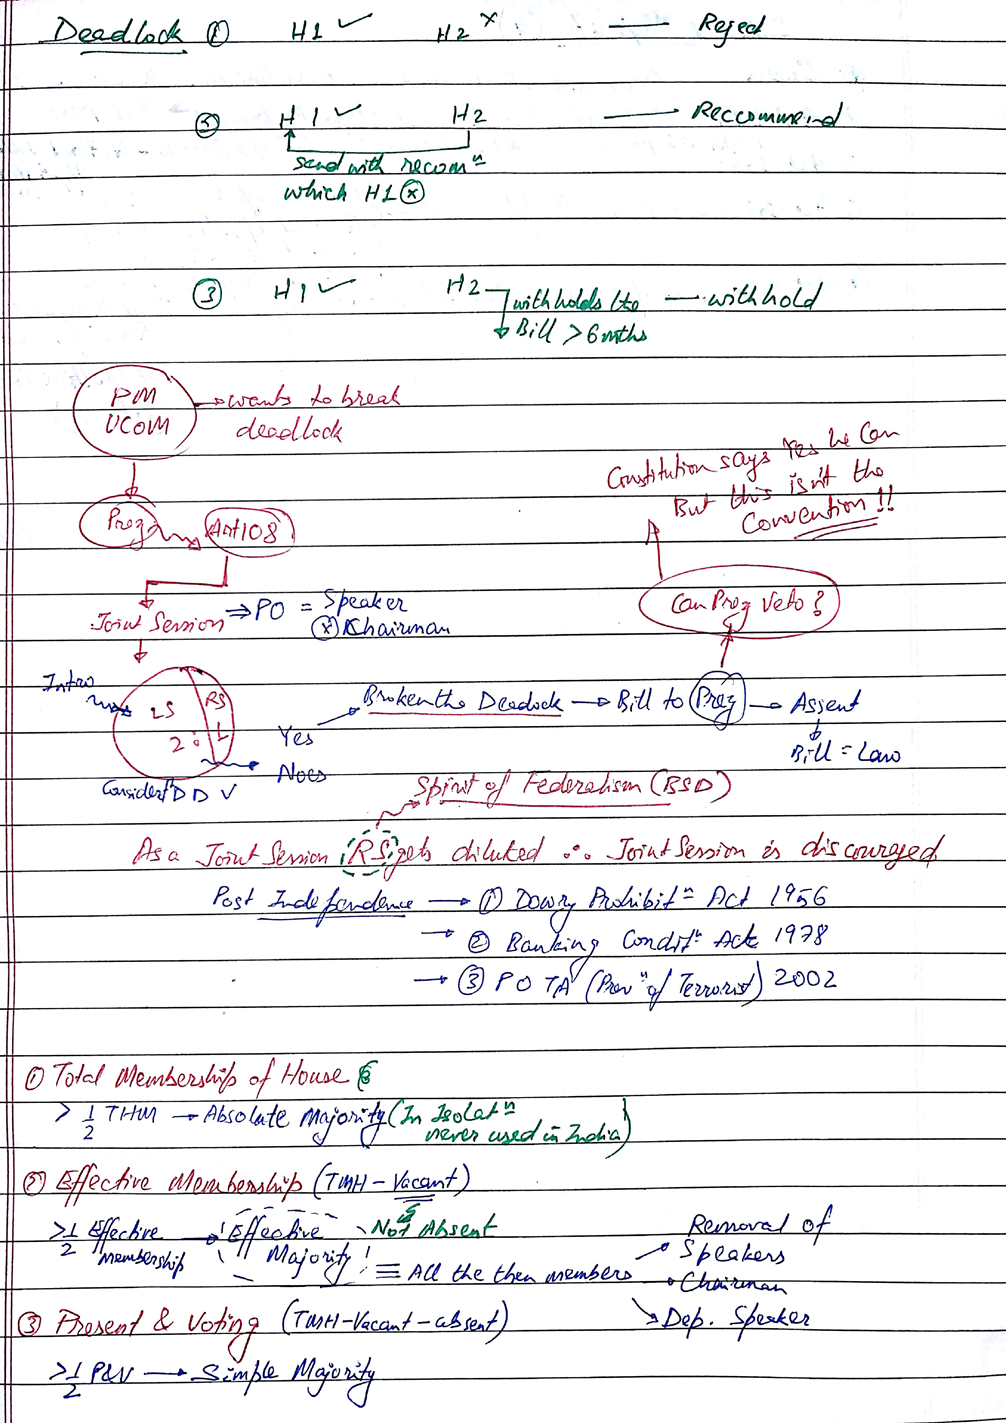 Deadlock ① H1 ✓ H2 × — Reject
② H1 ✓ H2 — Reccommend
send with recomⁿ
which H1 ⓧ
③ H1 ✓ H2 → withholds the — withhold
Bill > 6 mths
PM → wants to break
UCOM deadlock
Constitution says Yes he Can
But this isn't the
Convention!!
Prez → Art 108
Can Prez Veto?
Joint Session ⇒ PO = Speaker
ⓧ Chairman
Intro
LS RS
2 : 1
Considerⁿ D D V
Yes → Broken the Deadlock → Bill to Prez → Assent
Noes
Bill = Law
Spirit of Federalism (BSD)
As a Joint Session RS gets diluted ∴ Joint Session is discourged
Post Independence → ① Dowry Prohibitⁿ Act 1956
→ ② Banking Conditⁿ Act 1978
→ ③ POTA (Prevⁿ of Terrorist) 2002
① Total Membership of House
> 1/2 THM → Absolute Majority (In Isolatⁿ
never used in India)
② Effective Membership (TMH - Vacant)
> 1/2 Effective membership → Effective Majority Not Absent
≡ All the then members
Removal of
Speakers
Chairman
Dep. Speaker
③ Present & Voting (TMH-Vacant-absent)
> 1/2 P&V → Simple Majority